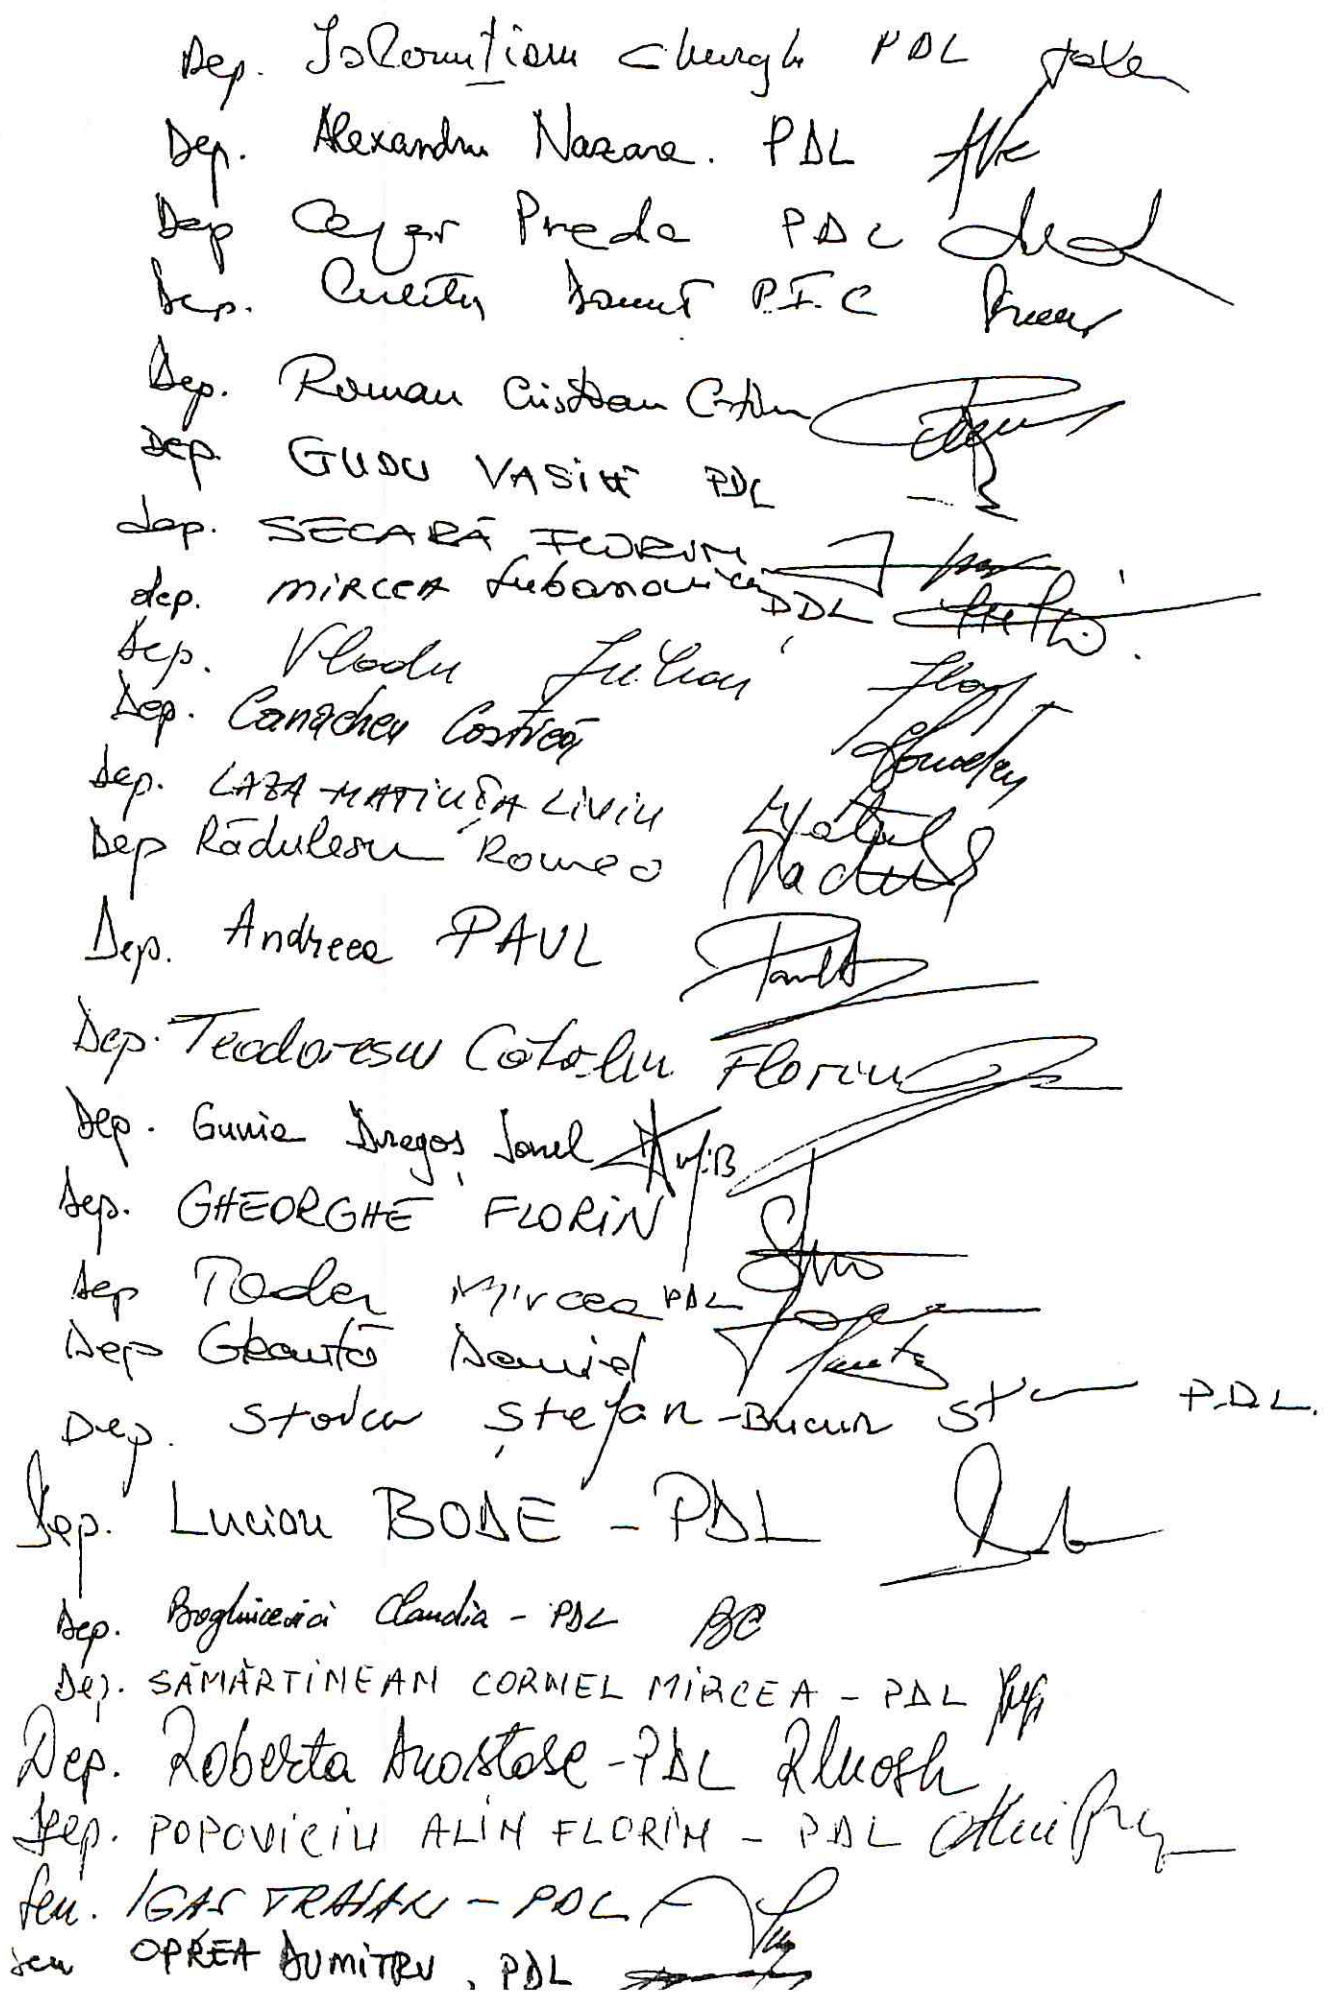 Dep. Ialomițianu Gheorghe PDL
Dep. Alexandru Nazare. PDL
Dep Cezar Preda PDL
Dep. Culețu Dănuț P.I.C
Dep. Roman Cristian C-tin
Dep. GUDU VASILE PDL
dep. SECARĂ FLORIN
dep. MIRCEA Lubanovici PDL
Dep. Vladu Iulian
Dep. Canacheu Costică
Dep. LAZA-MATIUȚA LIVIU
Dep Rădulescu Romeo
Dep. Andreea PAUL
Dep. Teodorescu Cătălin Florin
Dep. Gunia Dragoș Ionel
Dep. GHEORGHE FLORIN
Dep Toader Mircea PDL
Dep Geantă Daniel
Dep. Stoica Ștefan-Bucur PDL.
Dep. Lucian BODE - PDL
Dep. Boghicevici Claudia - PDL BC
Dep. SĂMĂRTINEAN CORNEL MIRCEA - PDL
Dep. Roberta Anastase - PDL
Dep. POPOVICIU ALIN FLORIN - PDL
Sen. IGAS TRAIAN - PDL
sen OPREA DUMITRU, PDL